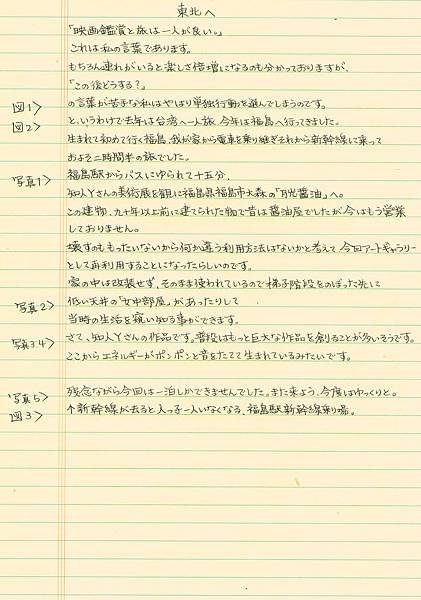 東北へ
「映画鑑賞と旅は一人が良い。」
これは私の言葉であります。
もちろん連れがいると楽しさ倍増になるのも分かっておりますが、
「この後どうする？」
図1> の言葉が苦手な私はやはり単独行動を選んでしまうのです。
図2> というわけで去年は台湾へ一人旅、今年は福島へ行ってきました。
生まれて初めて行く福島、我が家から電車を乗り継ぎそれから新幹線に乗って
およそ二時間半の旅でした。
写真1> 福島駅からバスにゆられて十五分、
知人Yさんの美術展を観に福島県福島市大森の「月光醤油」へ。
この建物、九十年以上前に建てられた物で昔は醤油屋でしたが今はもう営業
しておりません。
壊すのももったいないから何か違う利用方法はないかと考えて今回アートギャラリー
として再利用することになったらしいのです。
家の中は改装せず、そのまま使われているので梯子階段をのぼった先に
写真2> 低い天井の「女中部屋」があったりして
当時の生活を窺い知る事ができます。
写真3.4> さて、知人Yさんの作品です。普段はもっと巨大な作品を創ることが多いそうです。
ここからエネルギーがポンポンと音をたてて生まれているみたいです。
写真5> 残念ながら今回は一泊しかできませんでした。また来よう、今度はゆっくりと。
図3> 个新幹線が去ると人っ子一人いなくなる、福島駅新幹線乗り場。